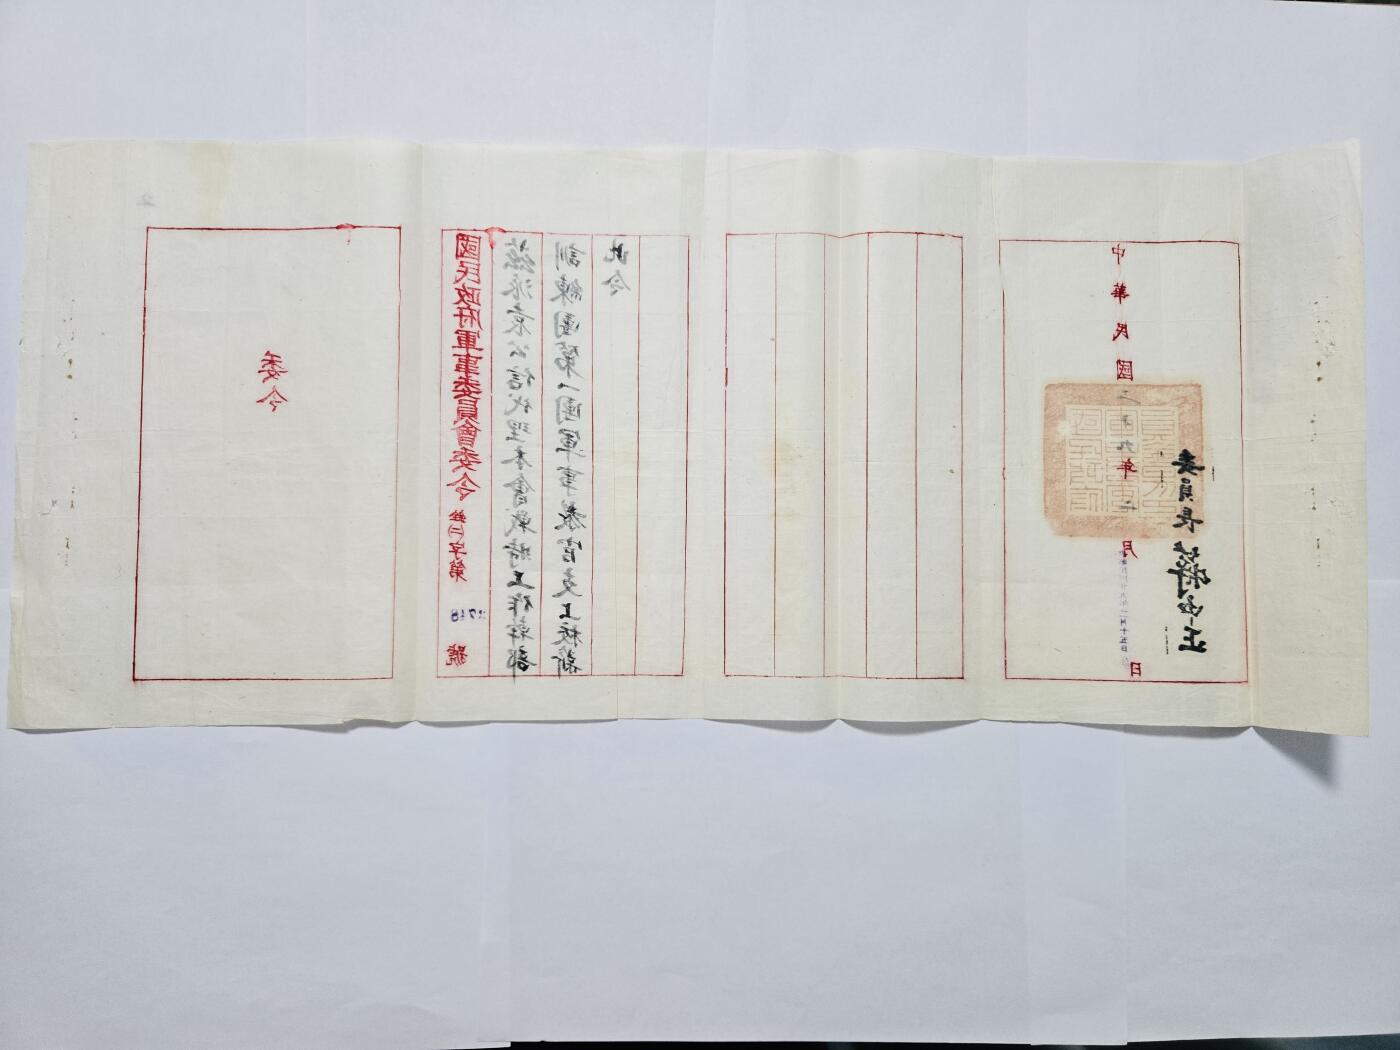 委令
國民政府軍事委員會委令 銓㈡字第 號
茲派袁公信代理本會戰時工作幹部
訓練團第一團軍事教官支上校薪
此令
中華民國二十九年二月 日
二月十五日
委員長 蔣中正